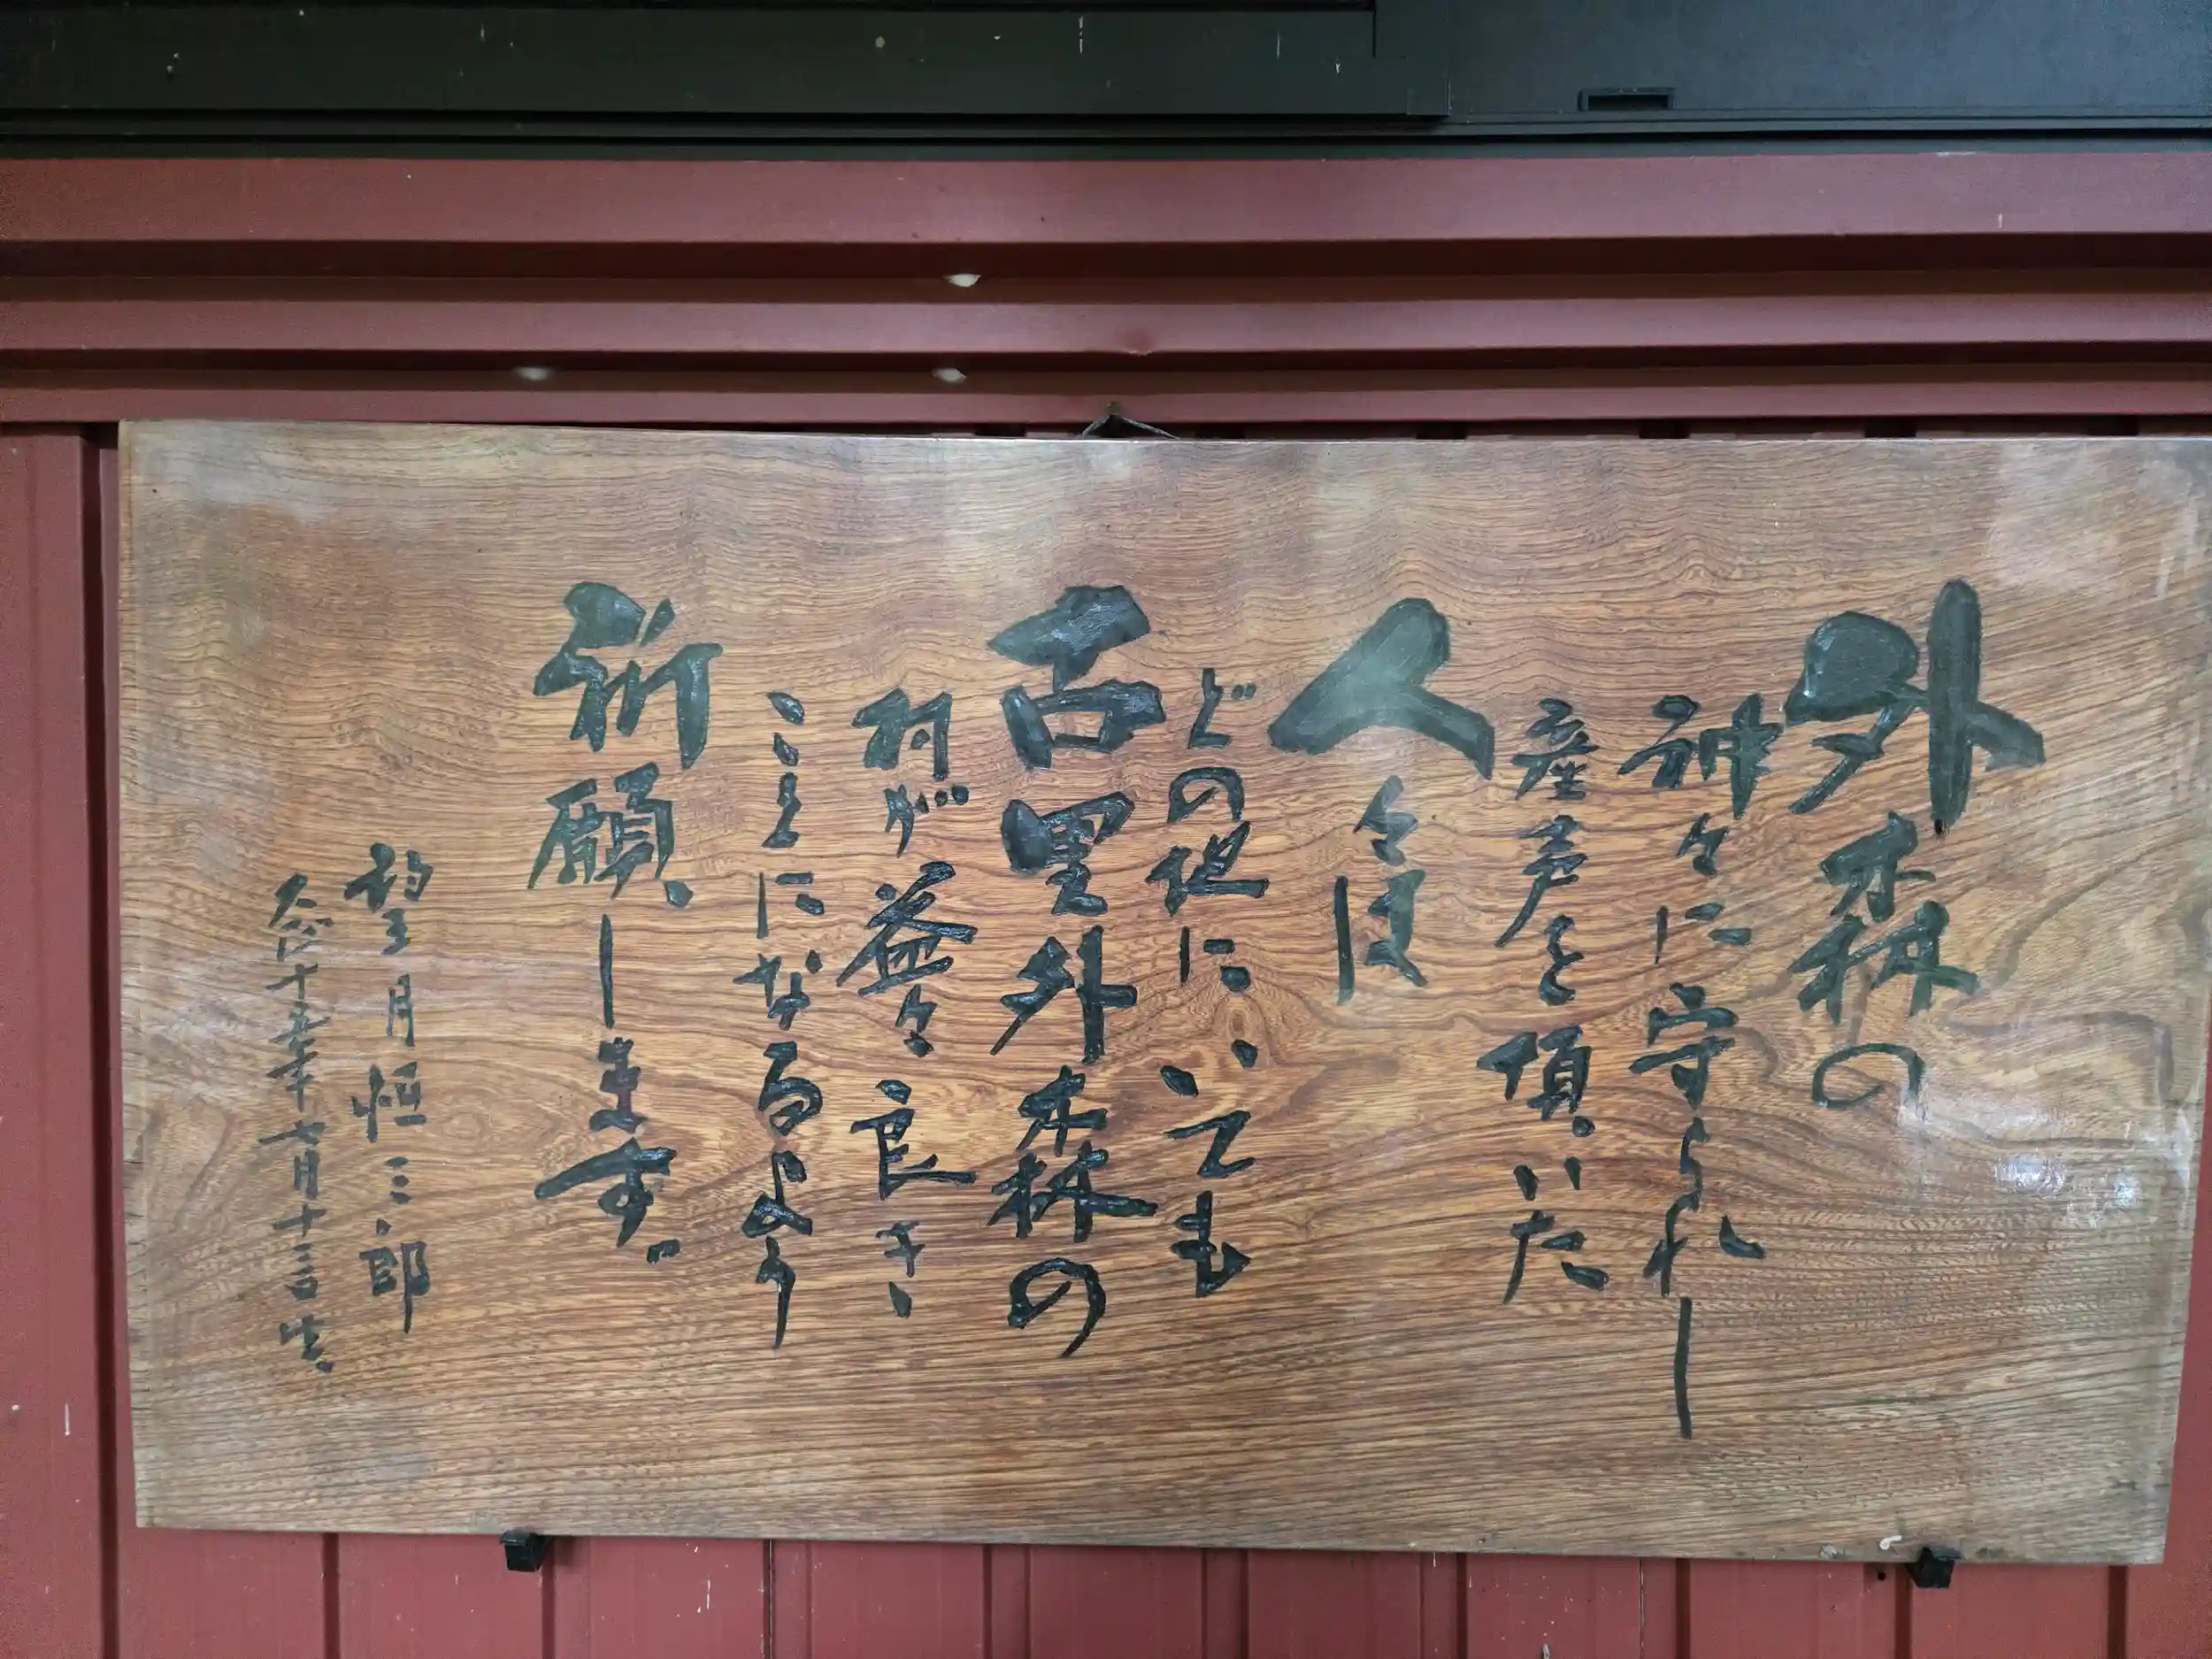 外森の
神々に守られし
産声を頂いた
人々は
どの地にいても
古里外森の
村が益々良き
ことになるよう
祈願します。
望月恒三郎
大正十五年七月十三日生